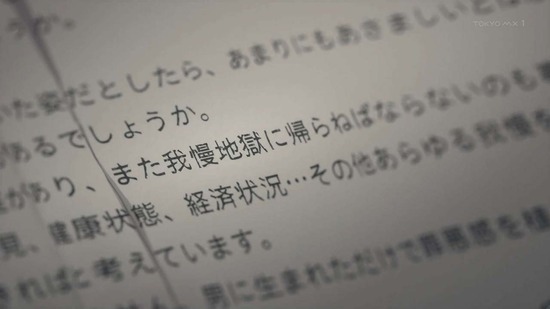 TOKYO MX 1
うか。
た姿だとしたら、あまりにもあさましいとは
があるでしょうか。
があり、また我慢地獄に帰らねばならないのも
見、健康状態、経済状況…その他あらゆる我慢を
きればと考えています。
男に生まれただけで罪悪感を植